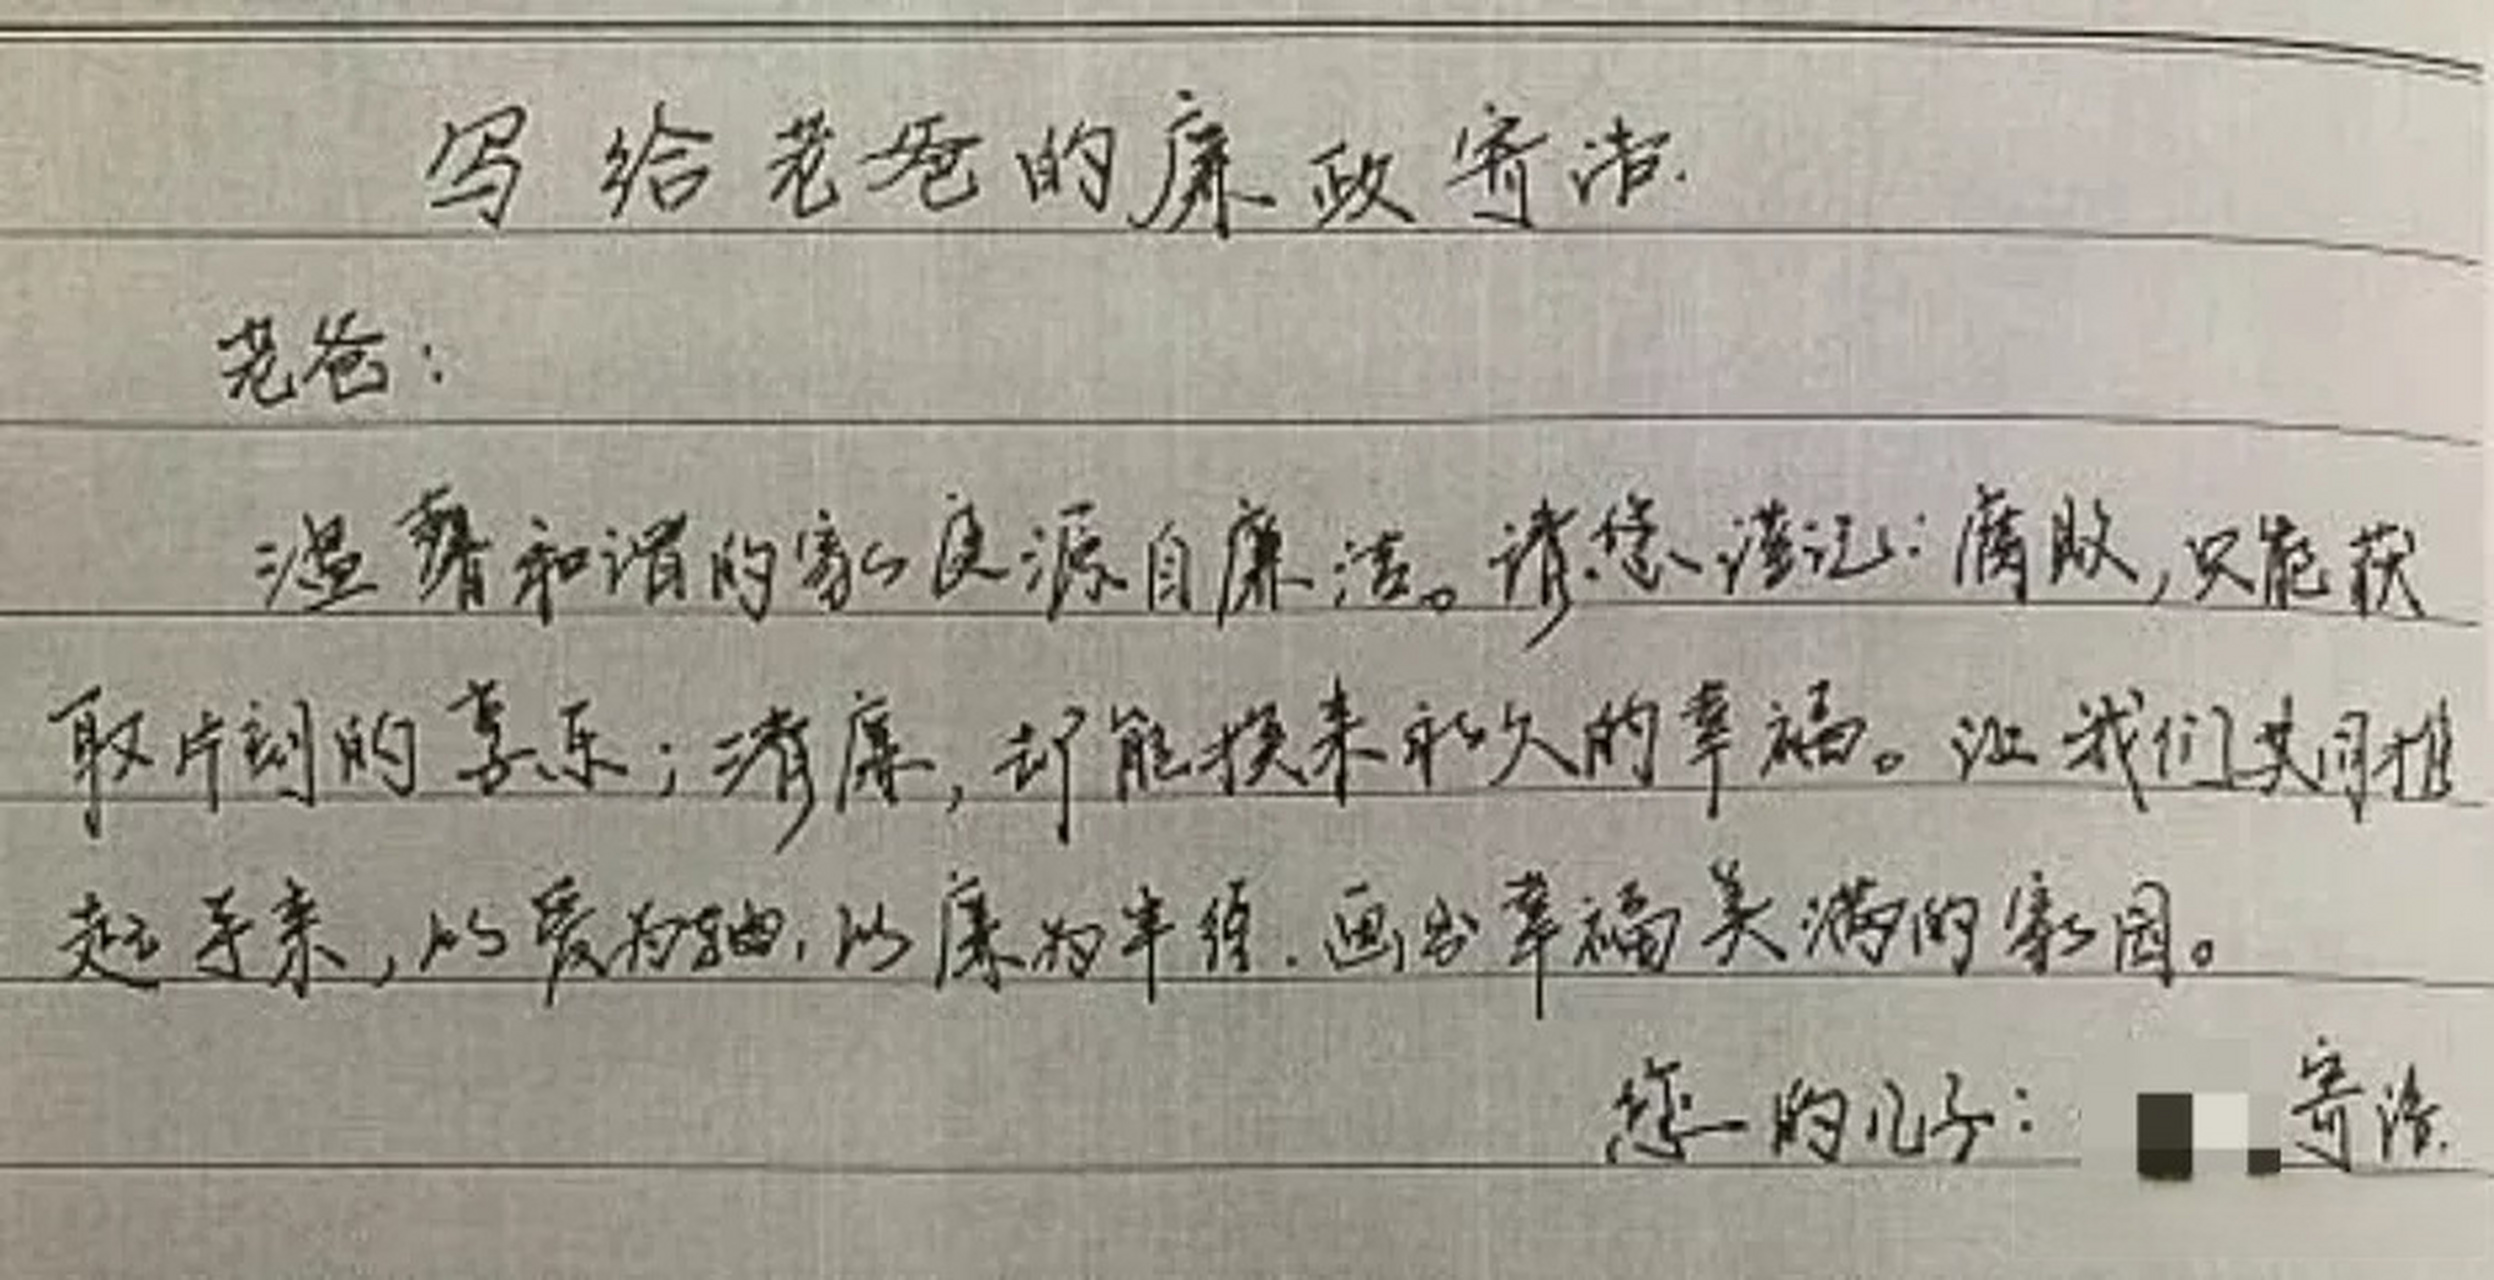 写给老爸的廉政寄语.
老爸:
温馨和谐的家庭源自廉洁。请您谨记:腐败,只能获
取片刻的享乐;清廉,却能换来永久的幸福。让我们共同担
起手来,以爱为轴,以廉为半径.画出幸福美满的家园。
您的儿子: 寄语.